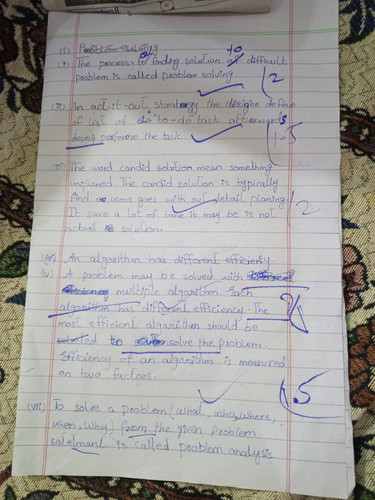 (i) Problem Solving
(i) The process of finding solution to difficult
problem is called problem solving.
2
(ii) In act-it-out stratergy the desigire define
of list of to-do task afterwards
desing perforne the task.
1.5
(iii) The word candid solution mean something
unplaned. The candid solution is typically
find or comes with out detail planing
It save a lot of time it may be is not
actual solution.
2
An algorithm has different efficienfy
(v) A problem may be solved with
multiple algorithm. Each
algorithm has different efficiency. The
most efficient algorithm should be
to solve the problem.
Efficiency of an algorithm is measured
on two factors.
2
1.5
(vii) To solve a problem (what, who, where,
when, why) from the given problem
satelmant is called problem analysis